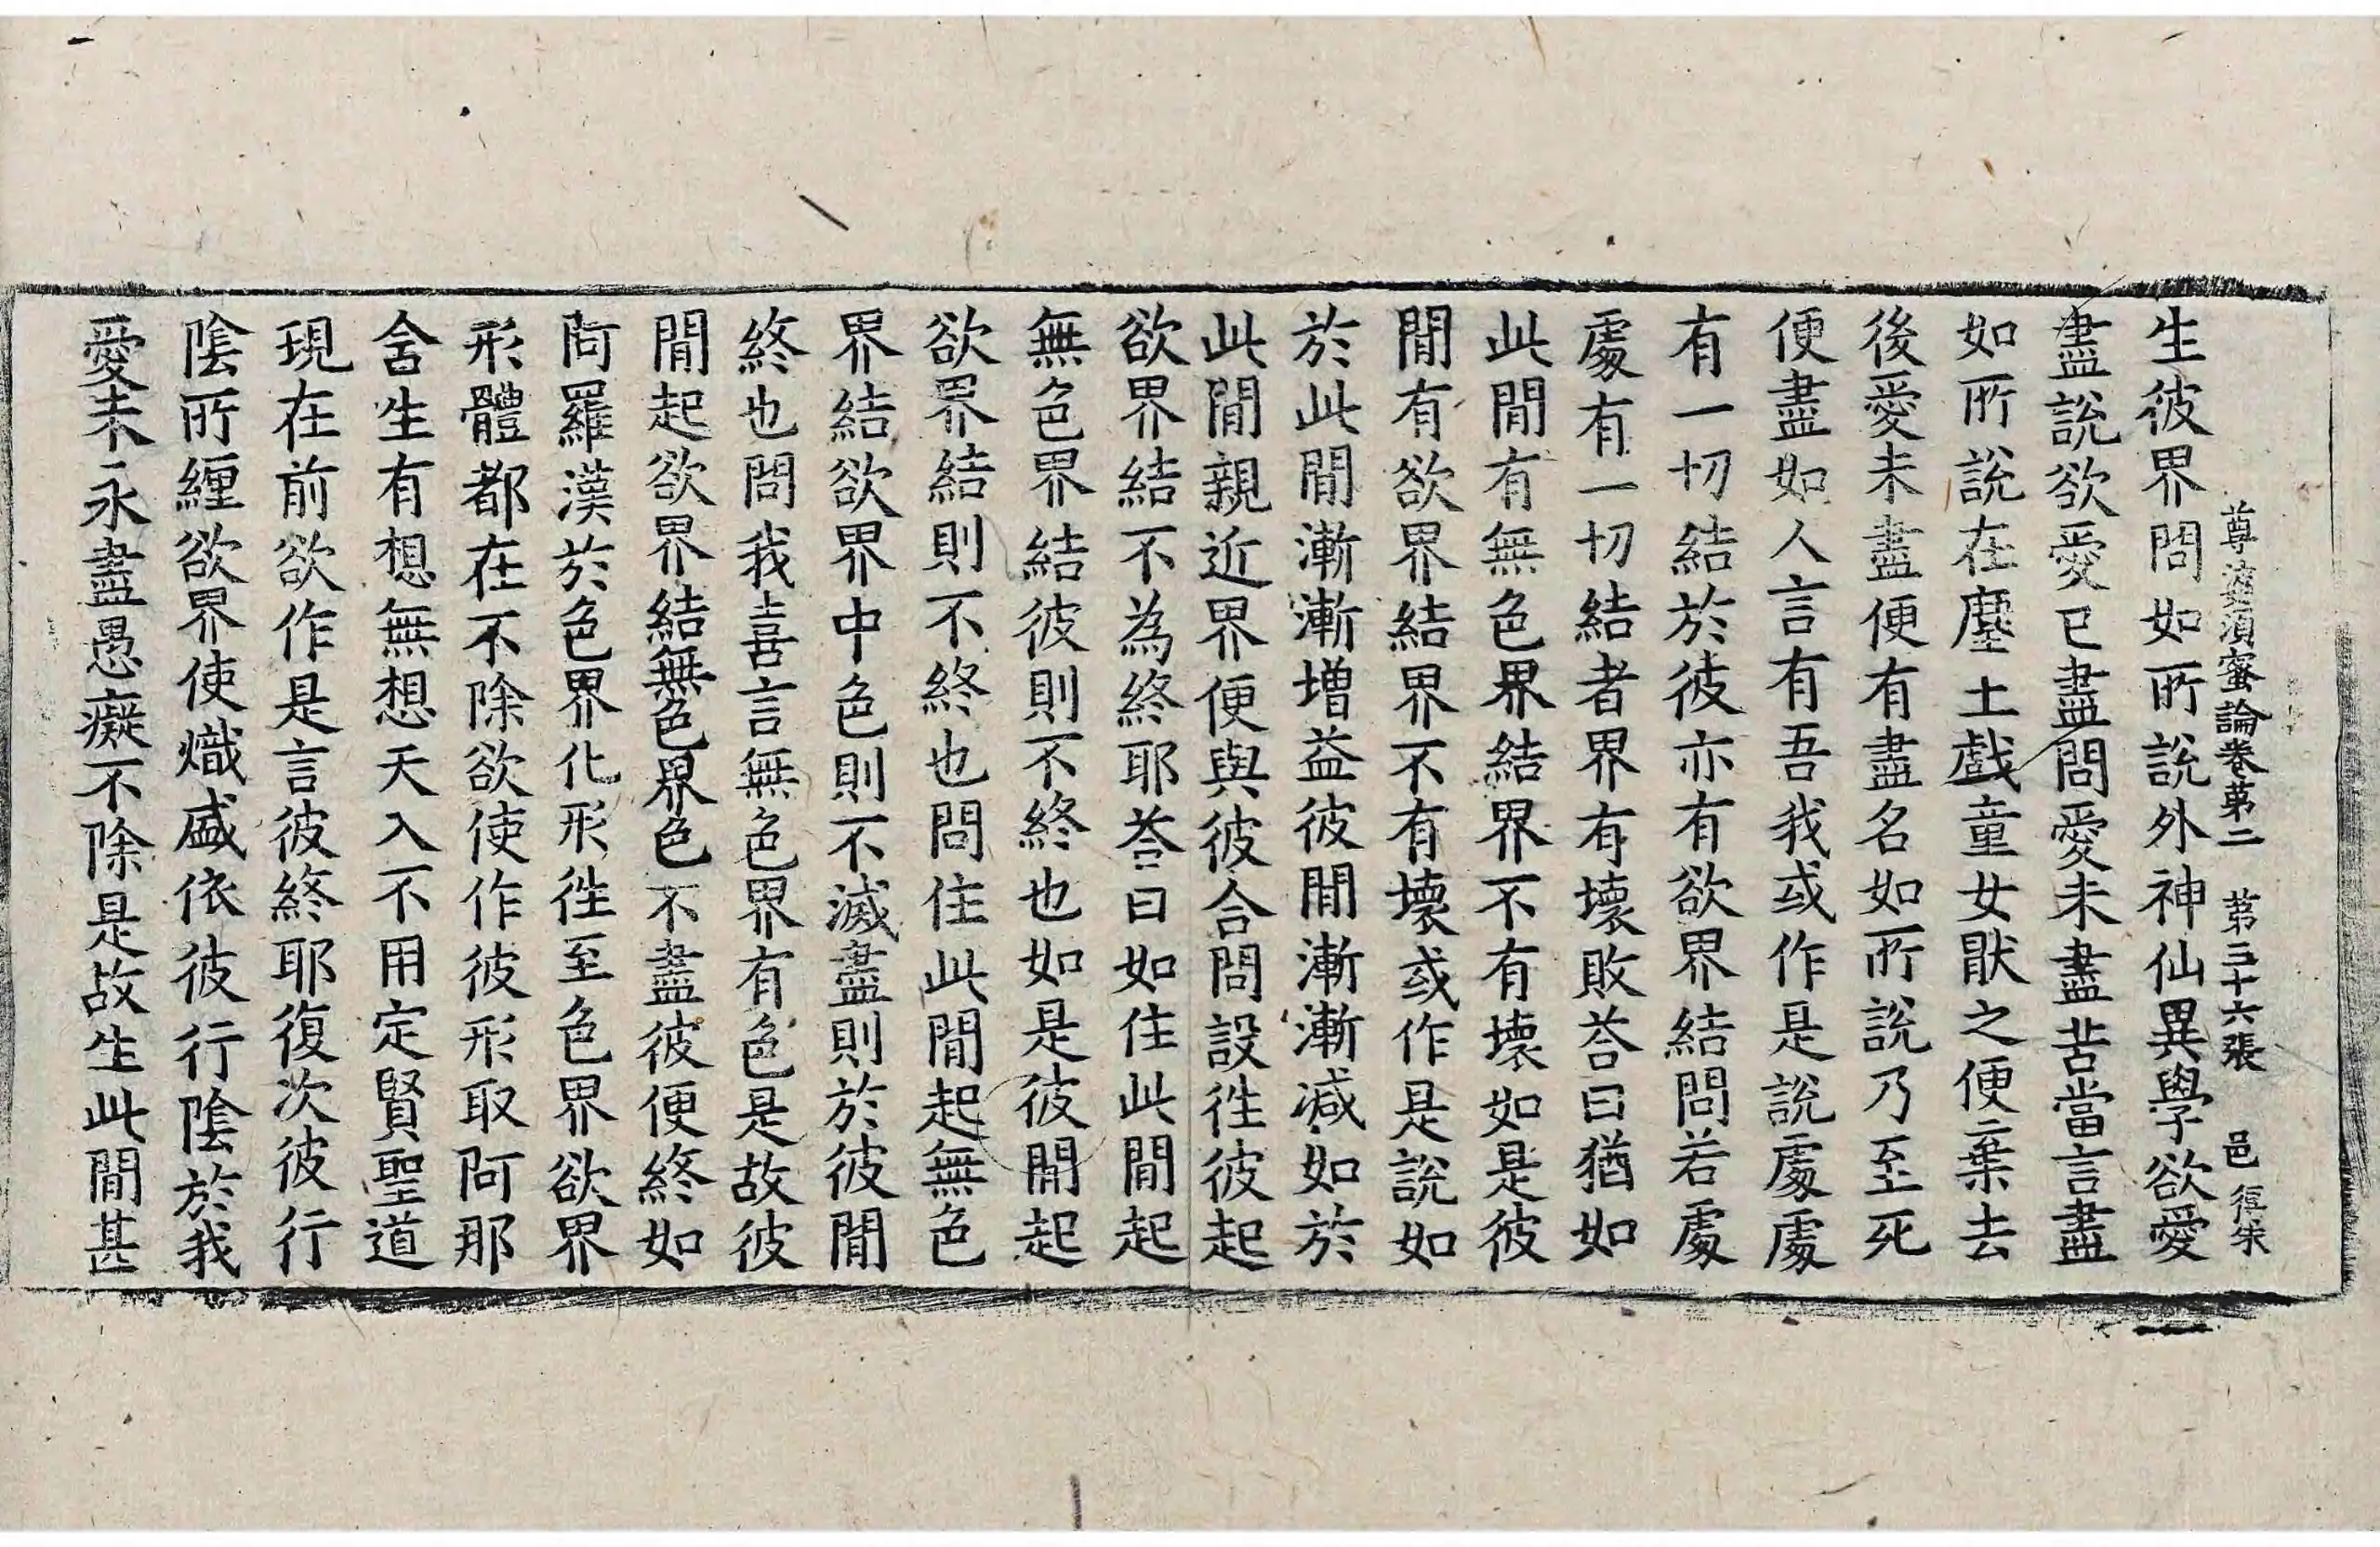 尊婆須蜜論卷第二　第三十六張　邑
生彼界問如所說外神仙異學欲愛
盡說欲愛已盡問愛未盡苦當言盡
如所說在塵土戲童女猒之便棄去
後愛未盡便有盡名如所說乃至死
便盡如人言有吾我或作是說處處
有一切結於彼亦有欲界結問若處
處有一切結者界有壞敗荅曰猶如
此閒有無色界結界不有壞如是彼
閒有欲界結界不有壞或作是說如
於此閒漸漸增益彼閒漸漸減如於
此閒親近界便與彼合問設徃彼起
欲界結不為終耶荅曰如住此閒起
無色界結彼則不終也如是彼閒起
欲界結則不終也問住此閒起無色
界結欲界中色則不滅盡則於彼閒
終也問我喜言無色界有色是故彼
閒起欲界結無色界色不盡彼便終如
阿羅漢於色界化形徃至色界欲界
形體都在不除欲使作彼形取阿那
含生有想無想天入不用定賢聖道
現在前欲作是言彼終耶復次彼行
陰所纏欲界使熾盛依彼行陰於我
愛未永盡愚癡不除是故生此閒甚